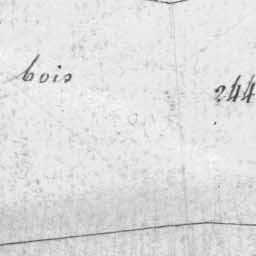 bois
244